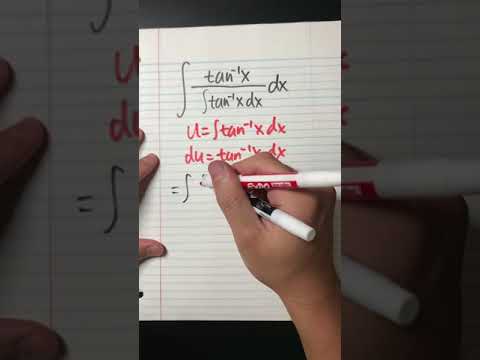 ∫ tan⁻¹x / ∫tan⁻¹x dx dx
u = ∫tan⁻¹x dx
du = tan⁻¹x dx
= ∫
EXPO